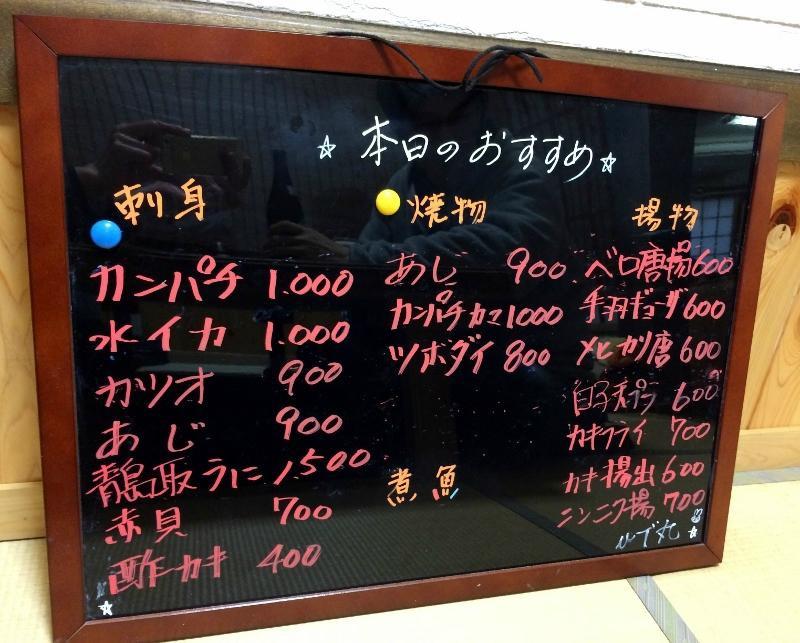 ☆ 本日のおすすめ ☆
刺身
カンパチ 1.000
水イカ 1.000
カツオ 900
あじ 900
うに 1,500
赤貝 700
酢カキ 400
焼物
あじ 900
カンパチカマ 1000
ツボダイ 800
煮魚
揚物
ベロ唐揚 600
手羽ギョーザ 600
メヒカリ唐 600
白子天プラ 600
カキフライ 700
カキ揚出 600
ニンニク揚 700
ひで丸